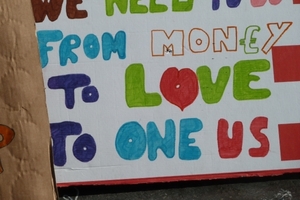 WE NEED TO
FROM MON€Y
TO LOVE
TO ONE US